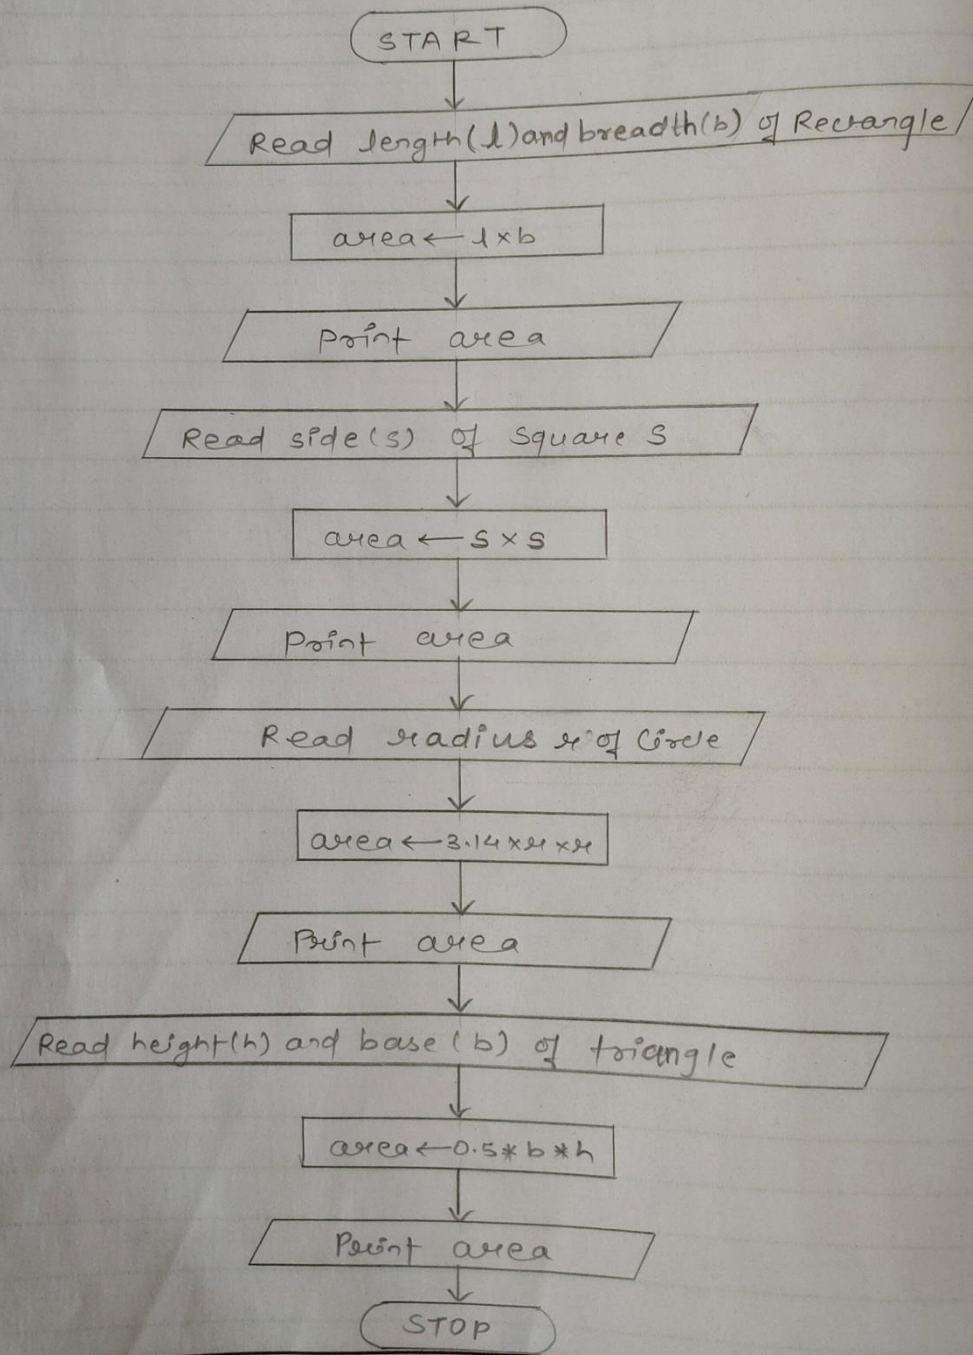 START
Read length(l) and breadth(b) of Rectangle
area ← l × b
Print area
Read side(s) of Square S
area ← s × s
Print area
Read radius r of Circle
area ← 3.14 × r × r
Print area
Read height(h) and base (b) of triangle
area ← 0.5 * b * h
Print area
STOP